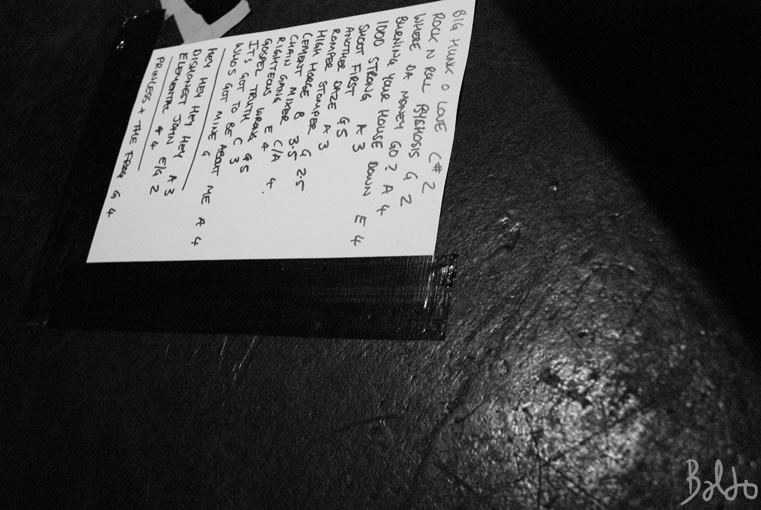 BIG HUNK O LOVE C# 2
ROCK N ROLL PSYCHOSIS G 2
WHERE DA MONEY GO? A 4
BURNING YOUR HOUSE DOWN E 4
1000 STRONG A 3
SHOOT FIRST
ANOTHER DAZE G 5
ROMPER STOMPER G 2.5
HIGH HORSE
CEMENT MIXER
CHAIN GANG E 4
RIGHTEOUS WRONG
GOSPEL TRUTH
IT'S GOT TO BE C 3
WHO'S GOT MINE ABOUT ME A 4
HEY HEY HEY HEY
DISHONEST JOHN A 3
ELEMENTAL E/G 2
PRINCESS + THE FROG G 4
Baldo